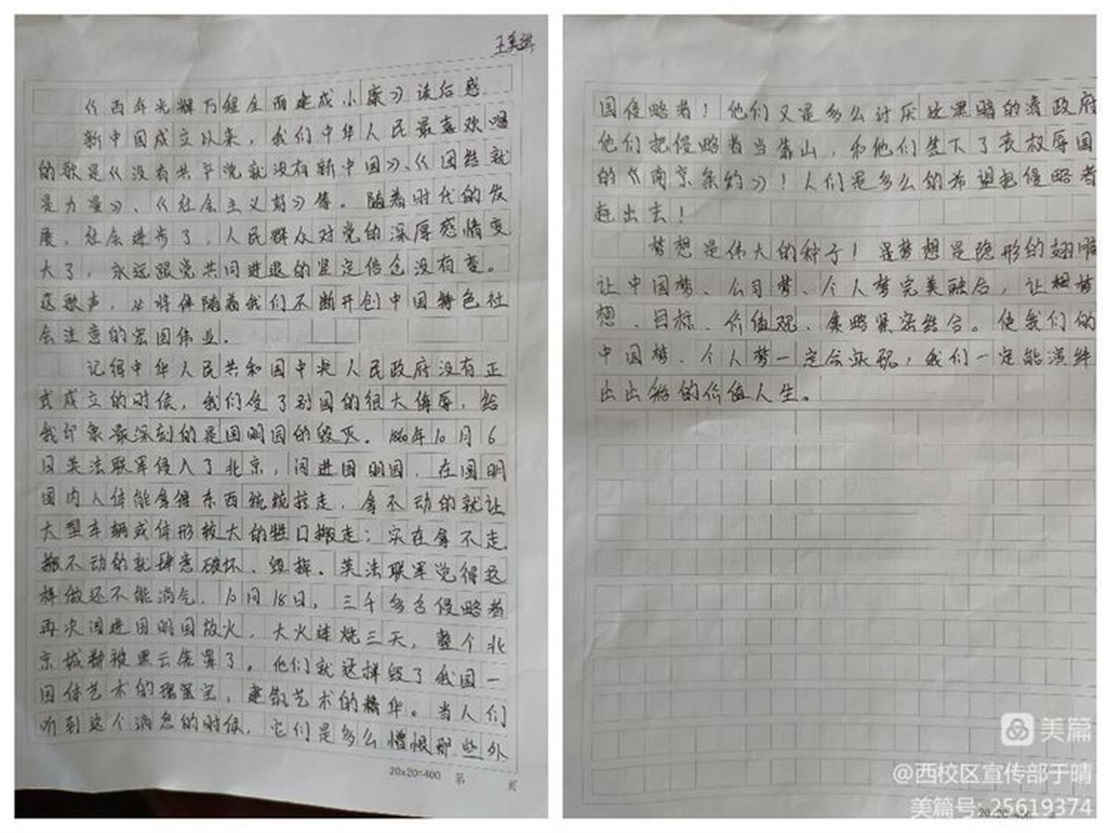 王美淇
《百年光辉历程全面建成小康》读后感
新中国成立以来，我们中华人民最喜欢唱
的歌是《没有共产党就没有新中国》、《团结就
是力量》、《社会主义好》等。随着时代的发
展，社会进步了，人民群众对党的深厚感情变
大了，永远跟党共同进退的坚定信仓没有变。
这歌声，必将伴随着我们不断开创中国特色社
会注意的宏图伟业。
记得中华人民共和国中央人民政府没有正
式成立的时候，我们受了别国的很大侮辱，给
我印象最深刻的是圆明园的毁灭。1860年10月6
日英法联军侵入了北京，闯进圆明园，在圆明
园内人体能拿得东西统统掠走，拿不动的就让
大型车辆或体形较大的牲口搬走；实在拿不走，
搬不动的就肆意破坏、毁掉。英法联军觉得这
样做还不能消气，10月18日，三千多名侵略者
再次闯进圆明园放火，大火连烧三天，整个北
京城都被黑云笼罩了。他们就这样毁了我国一
园体艺术的瑰宝，建筑艺术的精华。当人们
听到这个消息的时候，它们是多么憎恨那些外
国侵略者！他们又是多么讨厌这黑暗的清政府
他们把侵略者当靠山，和他们签下了丧权辱国
的《南京条约》！人们是多么的希望把侵略者
赶出去！
梦想是伟大的种子！是梦想是隐形的翅膀
让中国梦、公司梦、个人梦完美融合，让梦
想、目标、价值观、策略紧密结合。使我们的
中国梦、个人梦一定会实现，我们一定能演绎
出出彩的价值人生。
20×20=400 第 页
美篇
@西校区宣传部于晴
美篇号:25619374
20×20=400